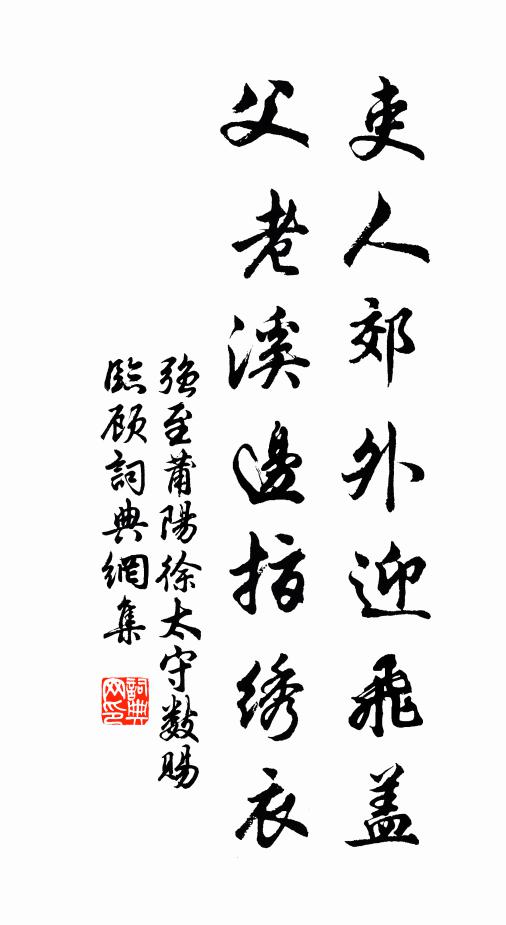 吏人郊外迎飛蓋
父老溪邊指綉衣
強至莆陽徐太守數賜
臨顧詞典網集
詞典
网印